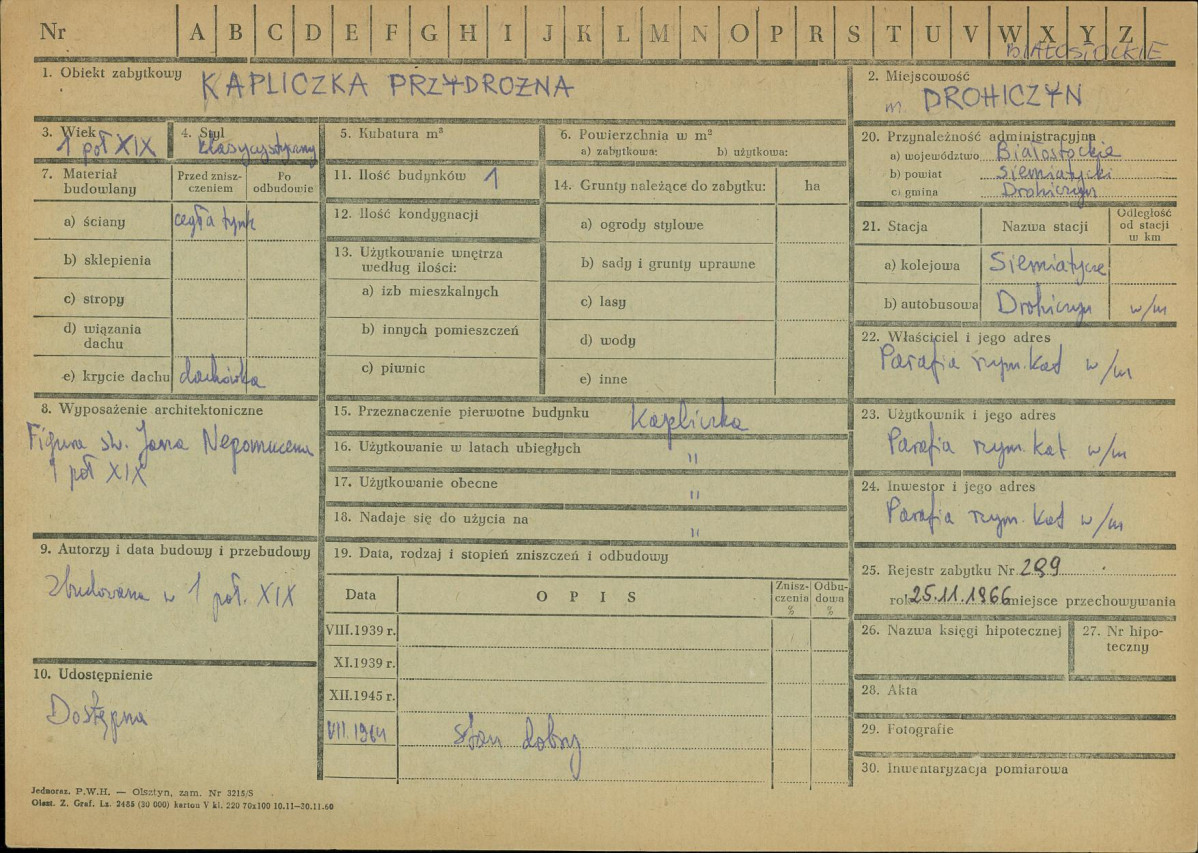 Nr A B C D E F G H I J K L M N O P R S T U V W X Y Z
BIAŁOSTOCKIE
1. Obiekt zabytkowy
KAPLICZKA PRZYDROŻNA
2. Miejscowość
m. DROHICZYN
3. Wiek
1 poł XIX
4. Styl
klasycystyczny
5. Kubatura m³
6. Powierzchnia w m²
a) zabytkowa: b) użytkowa:
7. Materiał budowlany
Przed znisz-
czeniem
Po
odbudowie
a) ściany cegła tynk
b) sklepienia
c) stropy
d) wiązania
dachu
e) krycie dachu dachówka
8. Wyposażenie architektoniczne
Figura św. Jana Nepomucena
1 poł XIX
9. Autorzy i data budowy i przebudowy
Zbudowana w 1 poł. XIX
10. Udostępnienie
Dostępna
11. Ilość budynków 1
12. Ilość kondygnacji
13. Użytkowanie wnętrza
według ilości:
a) izb mieszkalnych
b) innych pomieszczeń
c) piwnic
14. Grunty należące do zabytku: ha
a) ogrody stylowe
b) sady i grunty uprawne
c) lasy
d) wody
e) inne
15. Przeznaczenie pierwotne budynku Kapliczka
16. Użytkowanie w latach ubiegłych "
17. Użytkowanie obecne "
18. Nadaje się do użycia na "
19. Data, rodzaj i stopień zniszczeń i odbudowy
Data OPIS
Znisz-
czenia
%
Odbu-
dowa
%
VIII.1939 r.
XI.1939 r.
XII.1945 r.
VII.1964 stan dobry
20. Przynależność administracyjna
a) województwo Białostockie
b) powiat Siemiatycki
c) gmina Drohiczyn
21. Stacja Nazwa stacji
Odległość
od stacji
w km
a) kolejowa Siemiatycze
b) autobusowa Drohiczyn w/m
22. Właściciel i jego adres
Parafia rzym. kat w/m
23. Użytkownik i jego adres
Parafia rzym. kat w/m
24. Inwestor i jego adres
Parafia rzym. kat w/m
25. Rejestr zabytku Nr 289
rok 25.11.1966 miejsce przechowywania
26. Nazwa księgi hipotecznej
27. Nr hipo-
teczny
28. Akta
29. Fotografie
30. Inwentaryzacja pomiarowa
Jednoraz. P.W.H. — Olsztyn, zam. Nr 3215/S
Olszt. Z. Graf. Lz. 2485 (30 000) karton V kl. 220 70x100 10.11—30.11.60